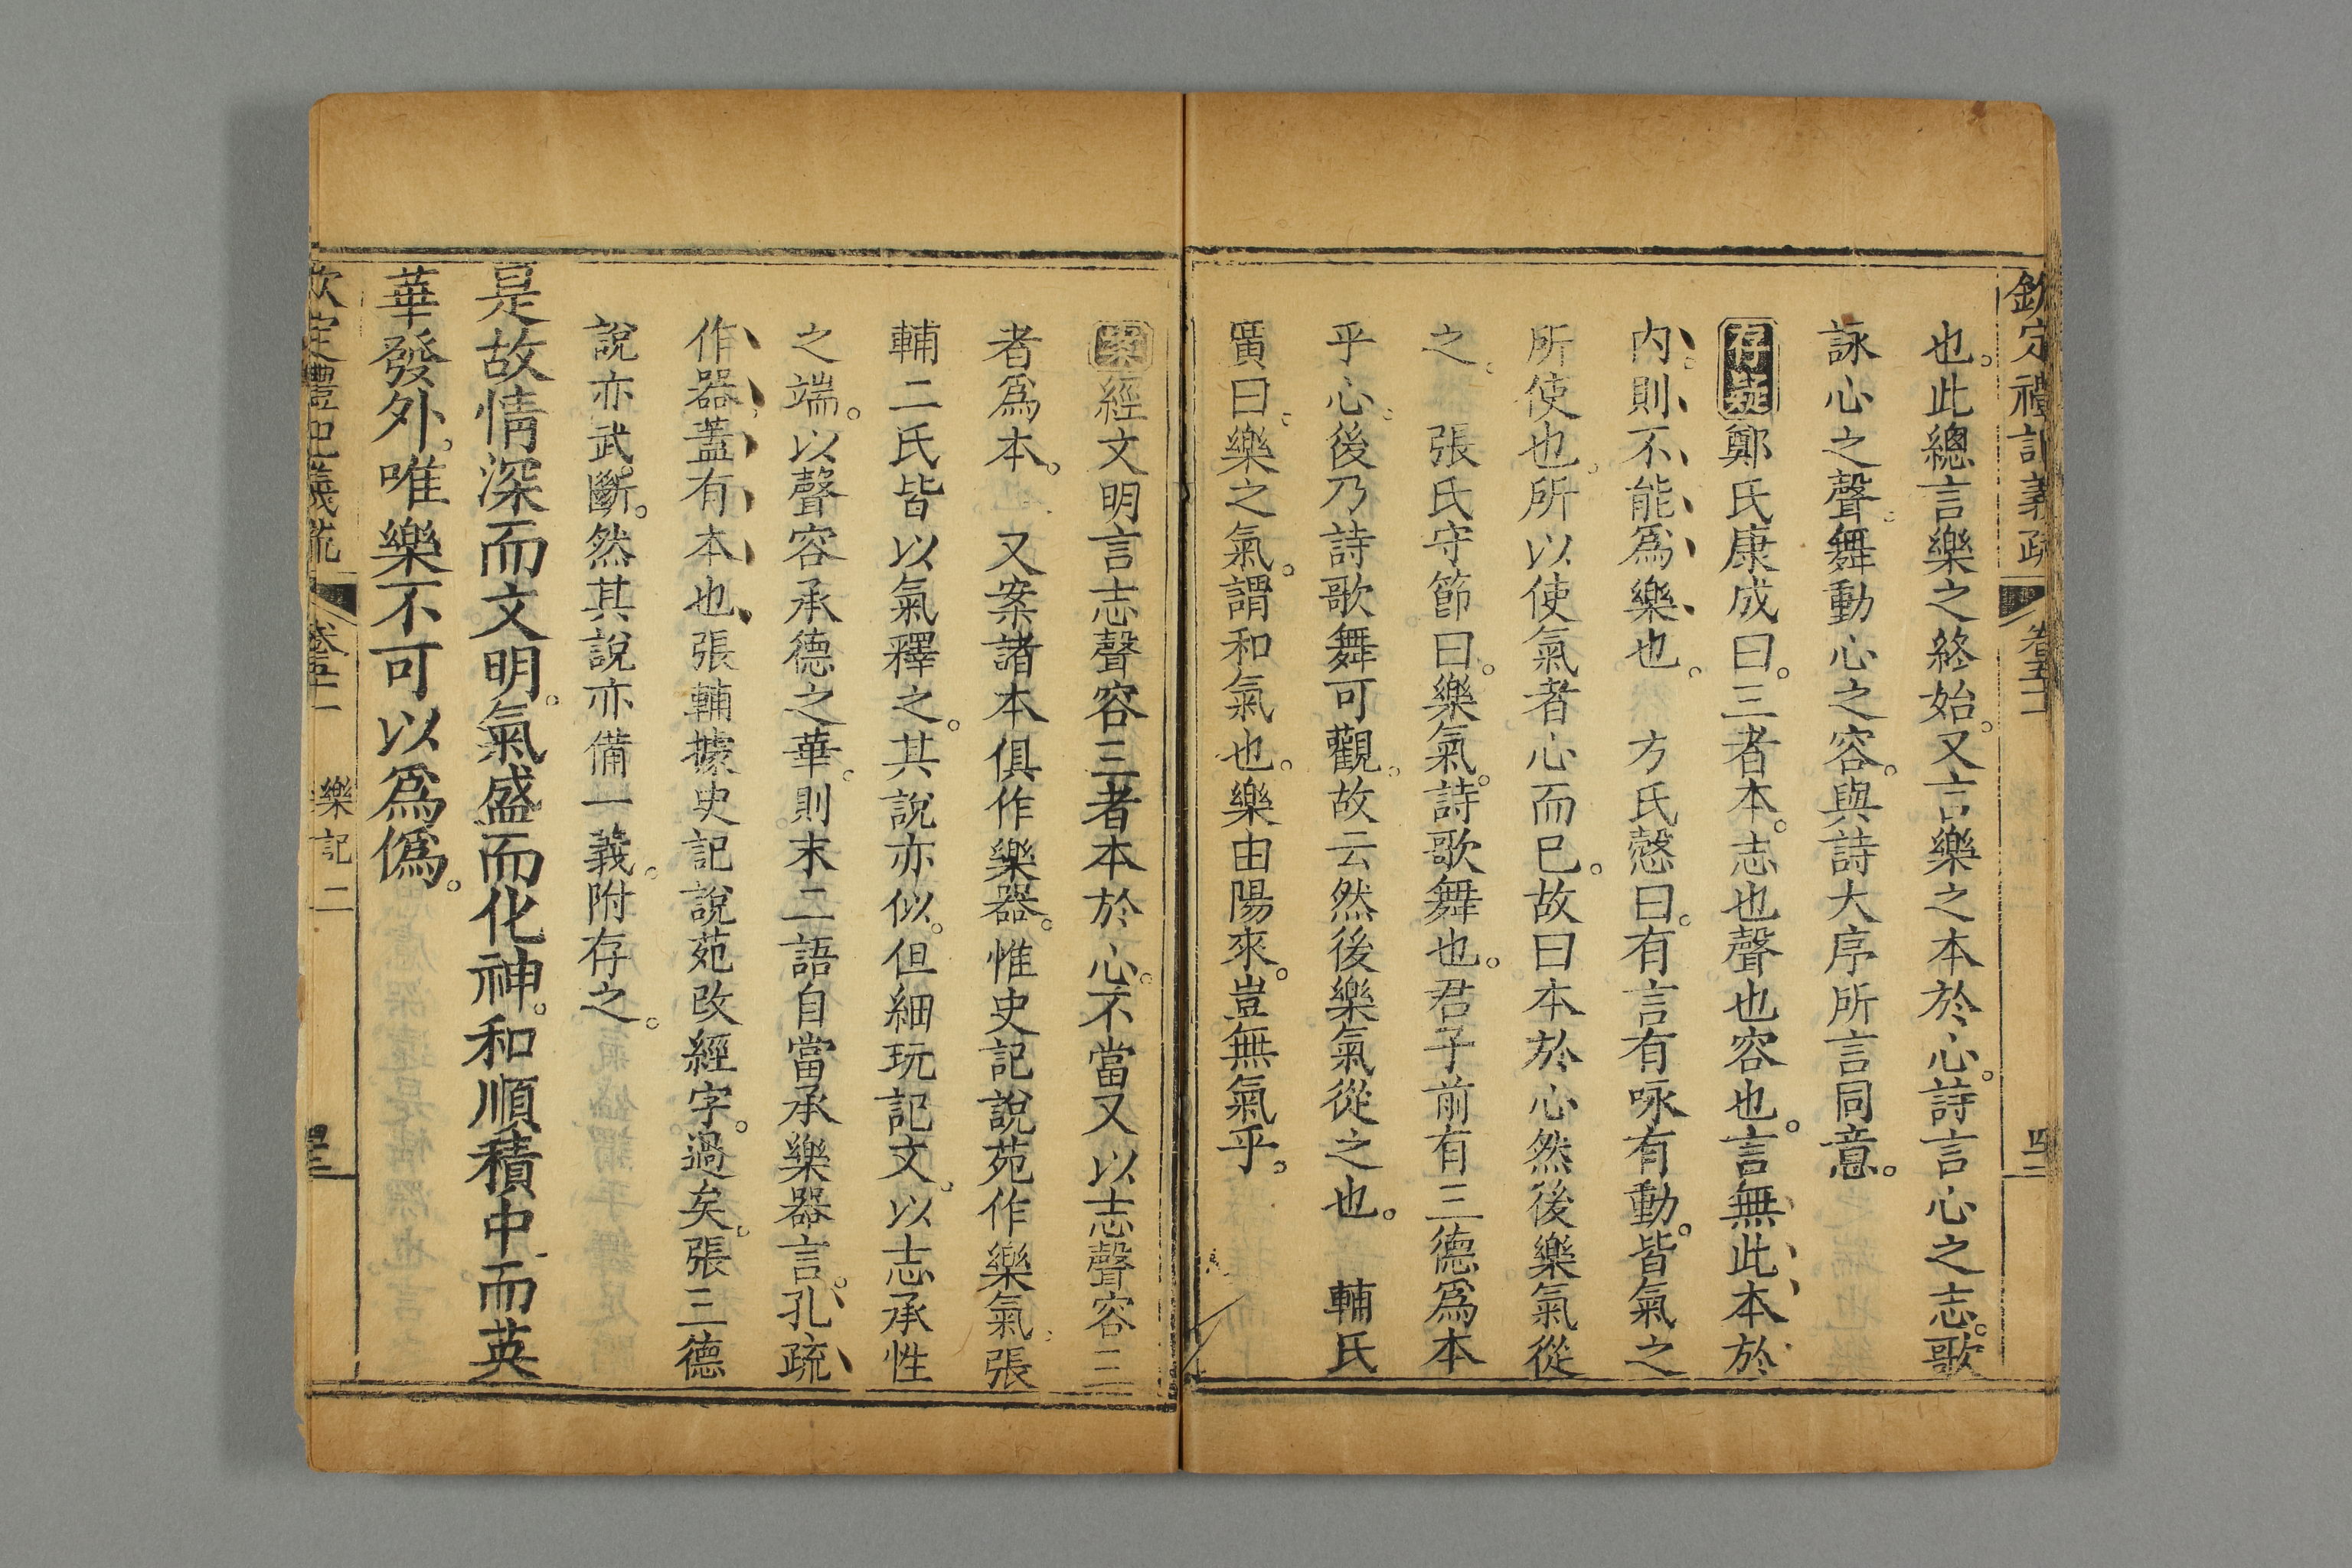 欽定禮記義疏 卷五十二 四二
也。此總言樂之終始。又言樂之本於心。詩言心之志。歌
詠心之聲。舞動心之容。與詩大序所言同意。
存疑鄭氏康成曰。三者本。志也聲也容也。言無此本於
內。則不能爲樂也。 方氏慤曰。有言有咏有動。皆氣之
所使也。所以使氣者心而已。故曰本於心然後樂氣從
之。 張氏守節曰。樂氣。詩歌舞也。君子前有三德爲本
乎心。後乃詩歌舞可觀。故云然後樂氣從之也。 輔氏
廣曰。樂之氣。謂和氣也。樂由陽來。豈無氣乎。
案經文明言志聲容三者本於心。不當又以志聲容三
者爲本。 又案諸本俱作樂器。惟史記說苑作樂氣。張
輔二氏皆以氣釋之。其說亦似。但細玩記文。以志承性
之端。以聲容承德之華。則末二語自當承樂器言。孔疏
作器。蓋有本也。張輔據史記說苑改經字。過矣。張三德
說亦武斷。然其說亦備一義。附存之。
是故情深而文明。氣盛而化神。和順積中而英
華發外。唯樂不可以爲僞。
欽定禮記義疏 卷五十二 樂記二 四三